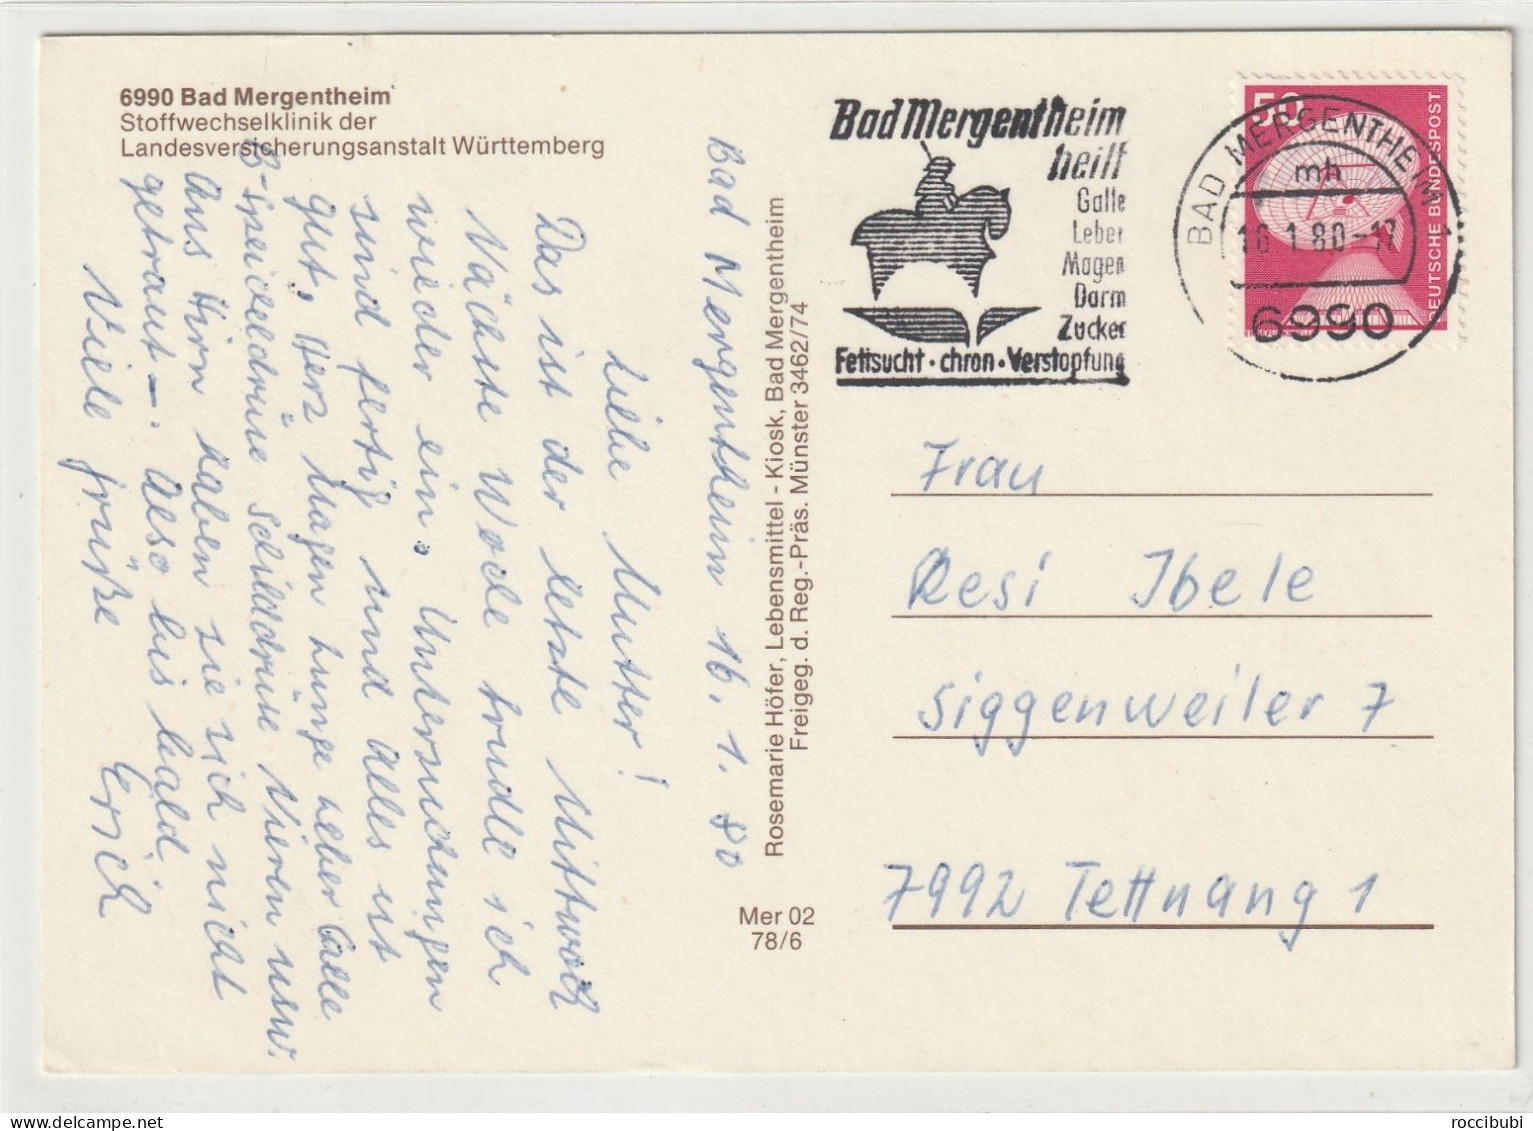 6990 Bad Mergentheim
Stoffwechselklinik der
Landesversicherungsanstalt Württemberg
Bad Mergentheim 16.1.80
Liebe Mutter!
Das ist der letzte Mittwoch
Nächste Woche trudle ich
wieder ein. Untersuchungen
sind fertig und Alles ist
gut, Herz Magen Lunge Leber Galle
B-Speicheldrüse Schilddrüse Nieren usw.
Ans Hirn haben sie sich nicht
getraut –. Also bis bald
Viele Grüße Erich
Rosemarie Höfer, Lebensmittel - Kiosk, Bad Mergentheim
Freigeg. d. Reg.-Präs. Münster 3462/74
Mer 02
78/6
Bad Mergentheim
heilt
Galle
Leber
Magen
Darm
Zucker
Fettsucht · chron · Verstopfung
50
DEUTSCHE BUNDESPOST
BAD MERGENTHEIM 1
mh
16.1.80-17
6990
Frau
Resi Ibele
Siggenweiler 7
7992 Tettnang 1
roccibubi